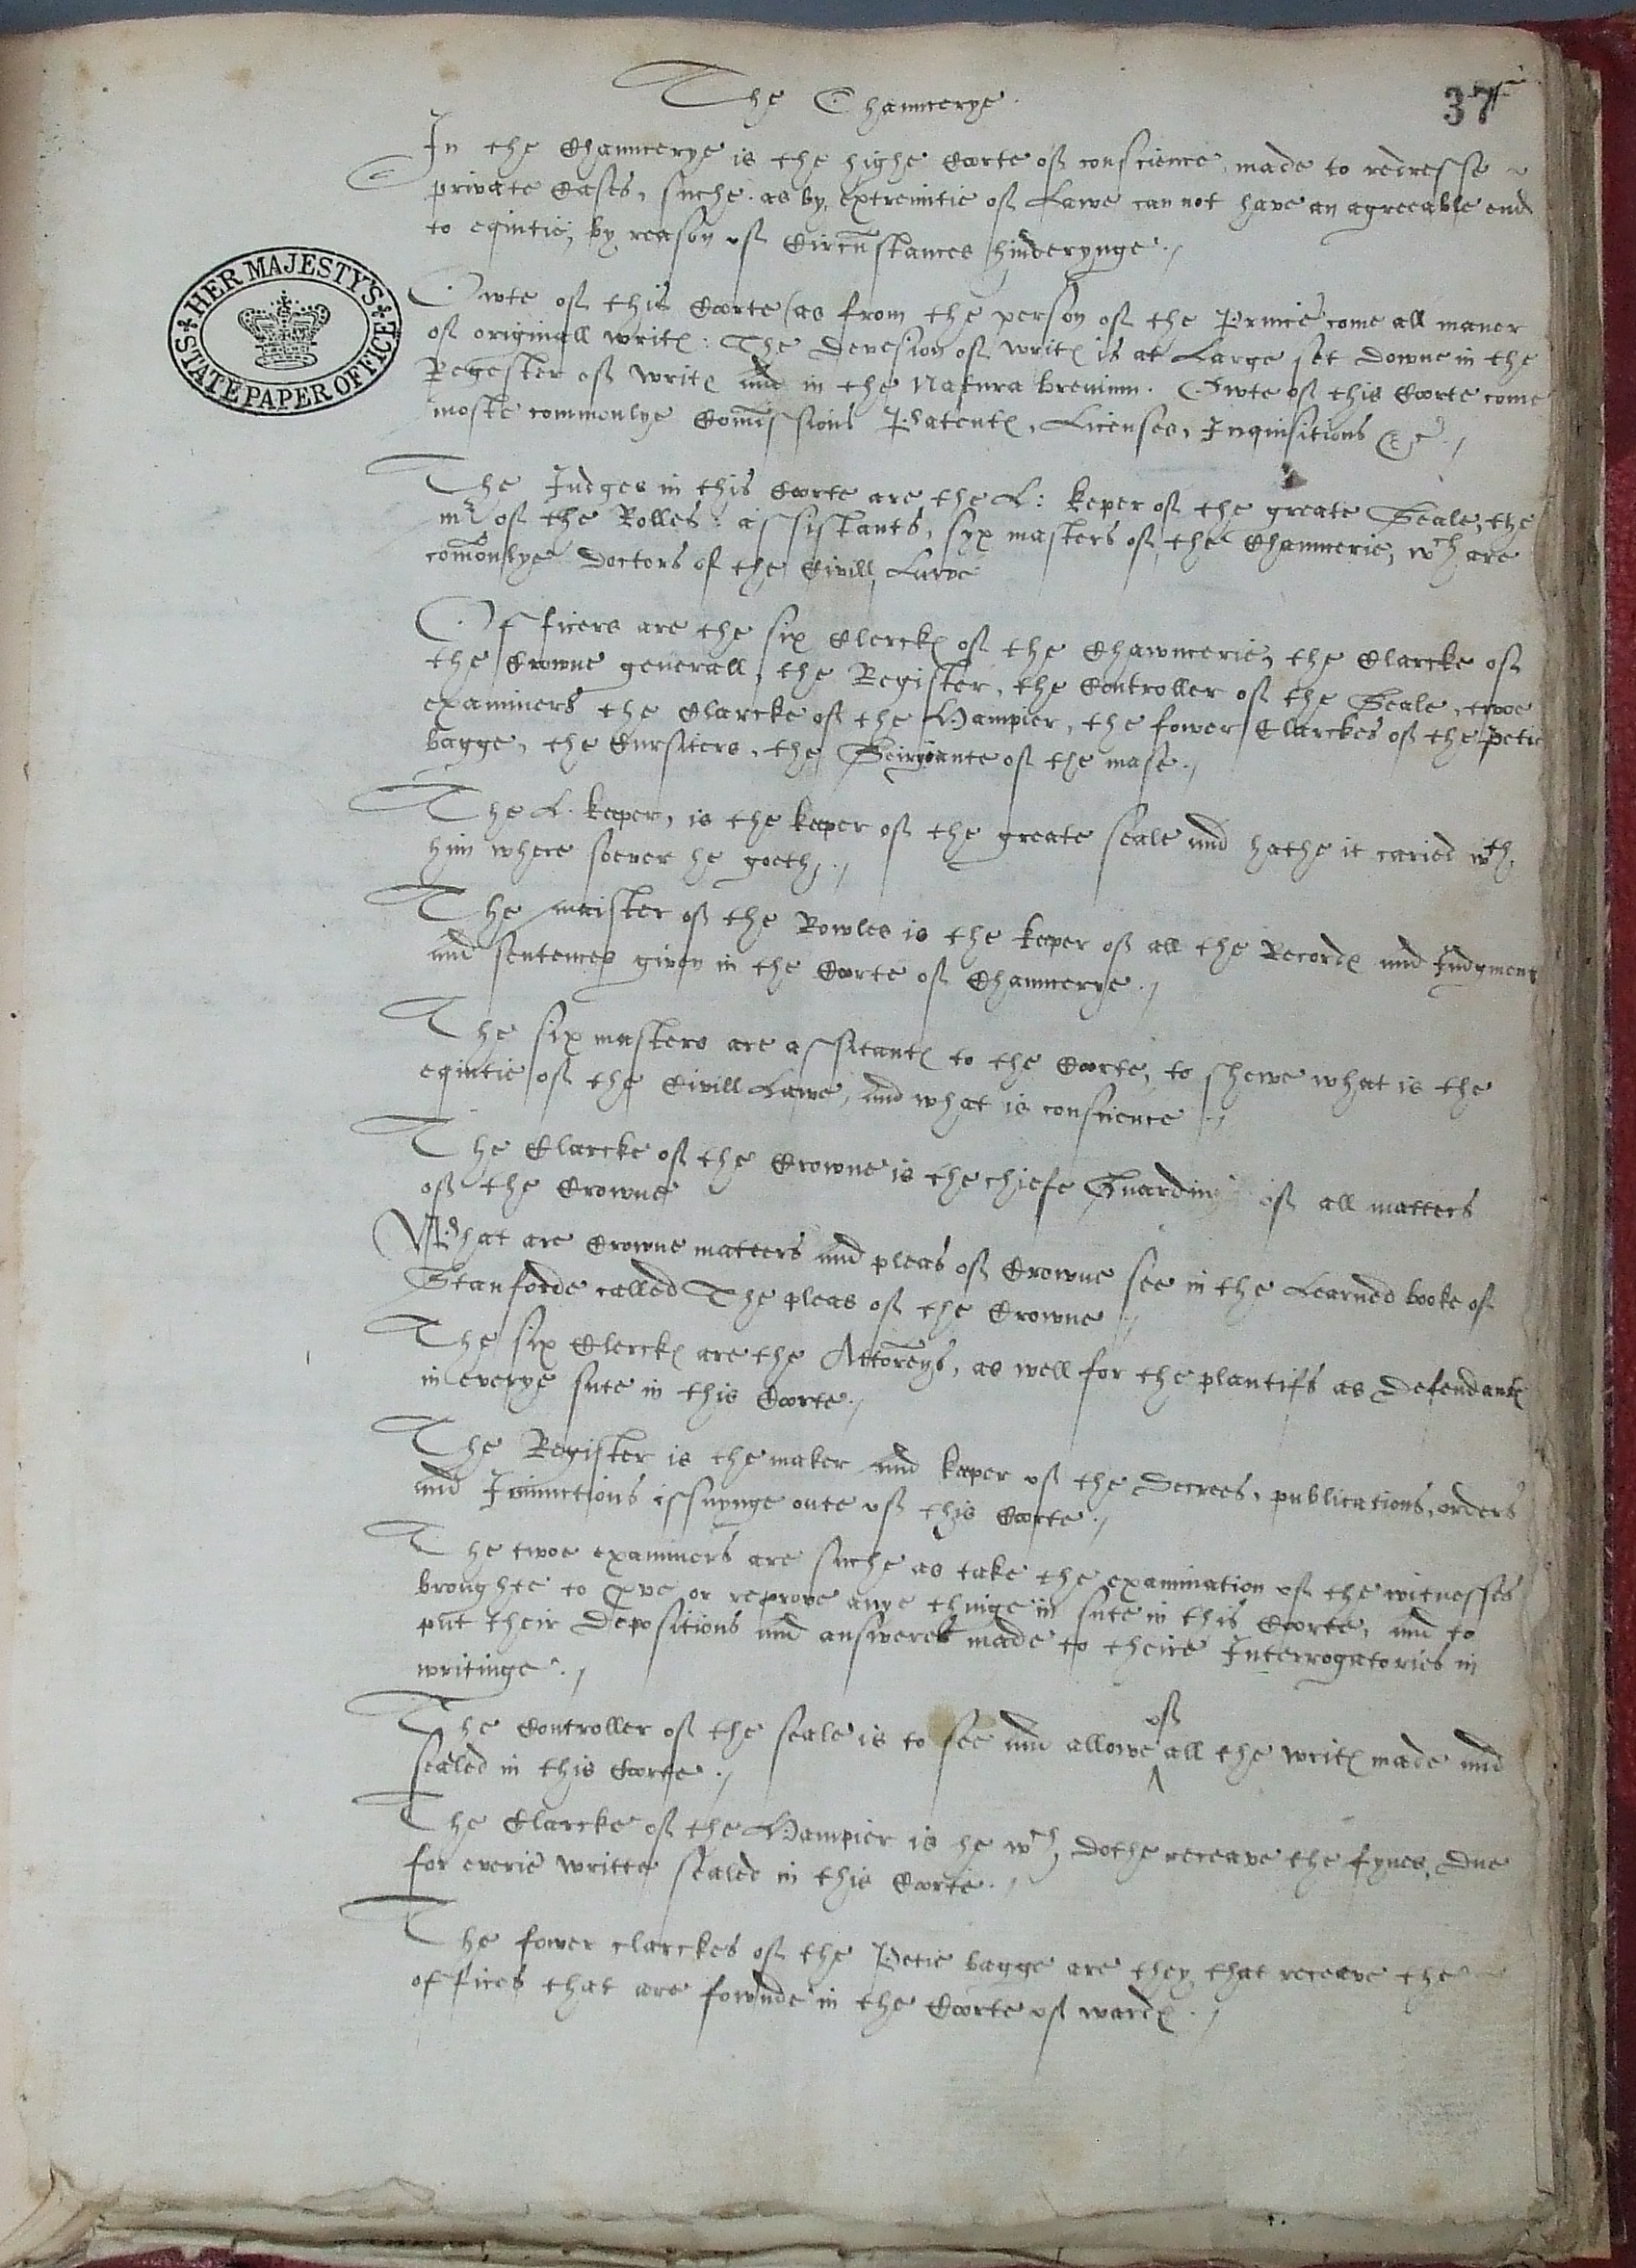 The Chauncerye
37
In the Chauncerye is the highe Corte of conscience, made to redresse
private Cases, suche as by extremitie of Lawe can not have an agreeable end
to equitie, by reason of Circũstances hinderynge.
HER MAJESTY'S STATE PAPER OFFICE
Owte of this Corte (as from the person of the Prince come all maner
of originall writes: The devesion of writes is at Large set downe in the
Regester of writes and in the Natura brevium. Owte of this Corte come
moste commonlye Comissions Patentes, Licenses, Inquisitions &c.
The Judges in this Corte are the L: keper of the greate Seale, the
mr of the Rolles: assistants, syx masters of the Chauncerie, wch are
comonlye Doctors of the Civill Lawe
Officers are the six Clerckes of the Chawncerie, the Clarcke of
the Crowne generall, the Register, the Controller of the Seale, twoe
examiners the Clarcke of the Hampier, the fower Clarckes of the petie
bagge, the Cursiters, the Seirgiante of the mase.
The L. keeper, is the keeper of the greate seale and hathe it caried wth
him where soever he goeth.
The maister of the Rowles is the keeper of all the Recordes and Judgments
and sentences given in the Corte of Chauncerye.
The six masters are assitantes to the Corte, to shewe what is the
equitie of the Civill Lawe, and what is conscience.
The Clarcke of the Crowne is the chiefe Guardin of all matters
of the Crowne
What are Crowne matters and pleas of Crowne see in the Learned booke of
Stanforde called The pleas of the Crowne
The six Clerckes are the Attoreys, as well for the plantifs as Defendantes
in everye sute in this Corte.
The Register is the maker and keeper of the Decrees, publications, orders
and Iniunctions issuynge oute of this Corte.
The twoe examiners are suche as take the examination of the witnesses
broughte to prve or reprove anye thinge in sute in this Corte, and to
put their Depositions and answeres made to theire Interrogatories in
writinge.
The Controller of the seale is to see and allowe of all the writes made and
sealed in this Corte.
The Clarcke of the Hampier is he wch dothe receave the fynes, due
for everie writte sealed in this Corte.
The fower clarckes of the Petie bagge are they that receave the
offices that are fownde in the Corte of wardes.